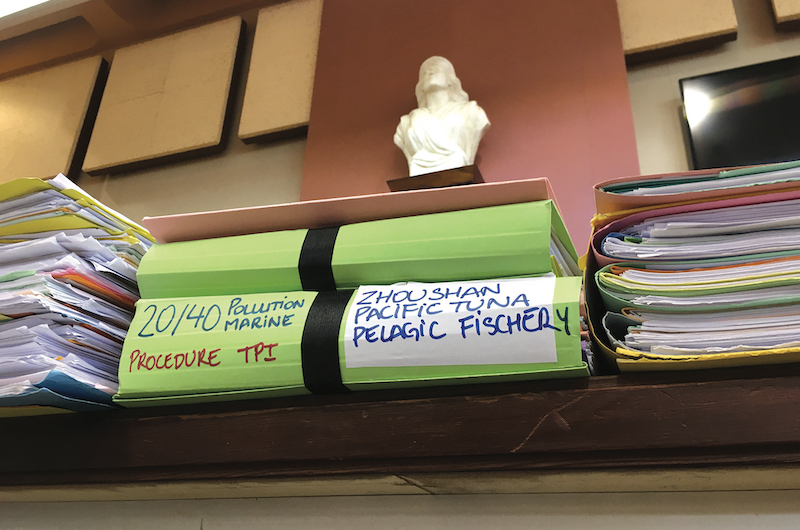 20/40 POLLUTION
MARINE
PROCEDURE TPI
ZHOUSHAN
PACIFIC TUNA
PELAGIC FISCHERY